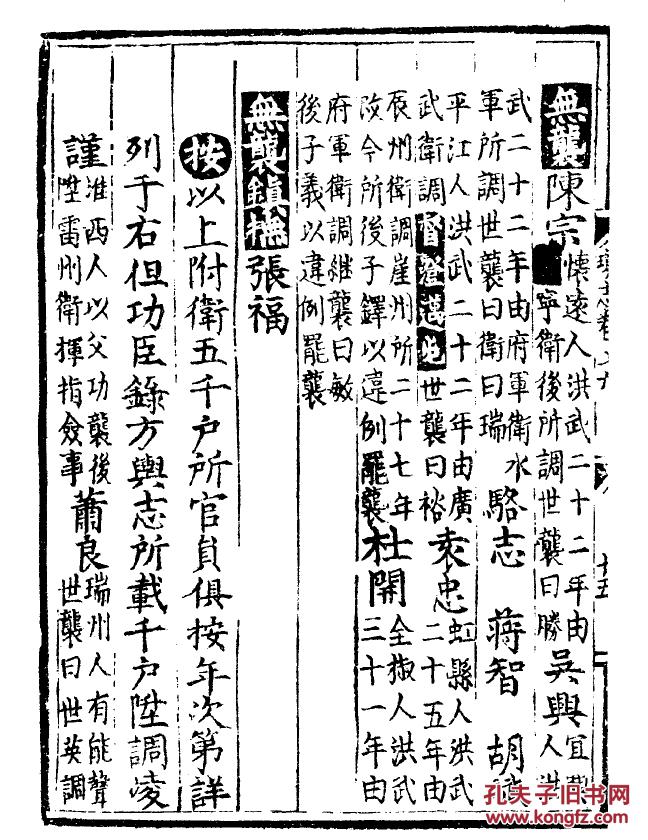 十五
無襲陳宗懷遠人洪武二十二年由
寧衛後所調世襲曰勝吳興宜興
人洪
武二十二年由府軍衛水
軍所調世襲曰衛曰瑞駱志 蔣智 胡
平江人洪武二十二年由廣
武衛調世襲曰裕袁忠虹縣人洪武
二十五年由
辰州衛調崖州所二十七年
改今所後子鐸以違例罷襲杜開全椒人洪武
三十一年由
府軍衛調繼襲曰敏
後子義以違例罷襲
無襲鎮撫張福
按以上附衛五千户所官員俱按年次第詳
列于右但功臣錄方輿志所載千户陞調凌
謹淮西人以父功襲後
陞雷州衛揮指僉事蕭良瑞州人有能聲
世襲曰世英調
孔夫子旧书网
www.kongfz.com